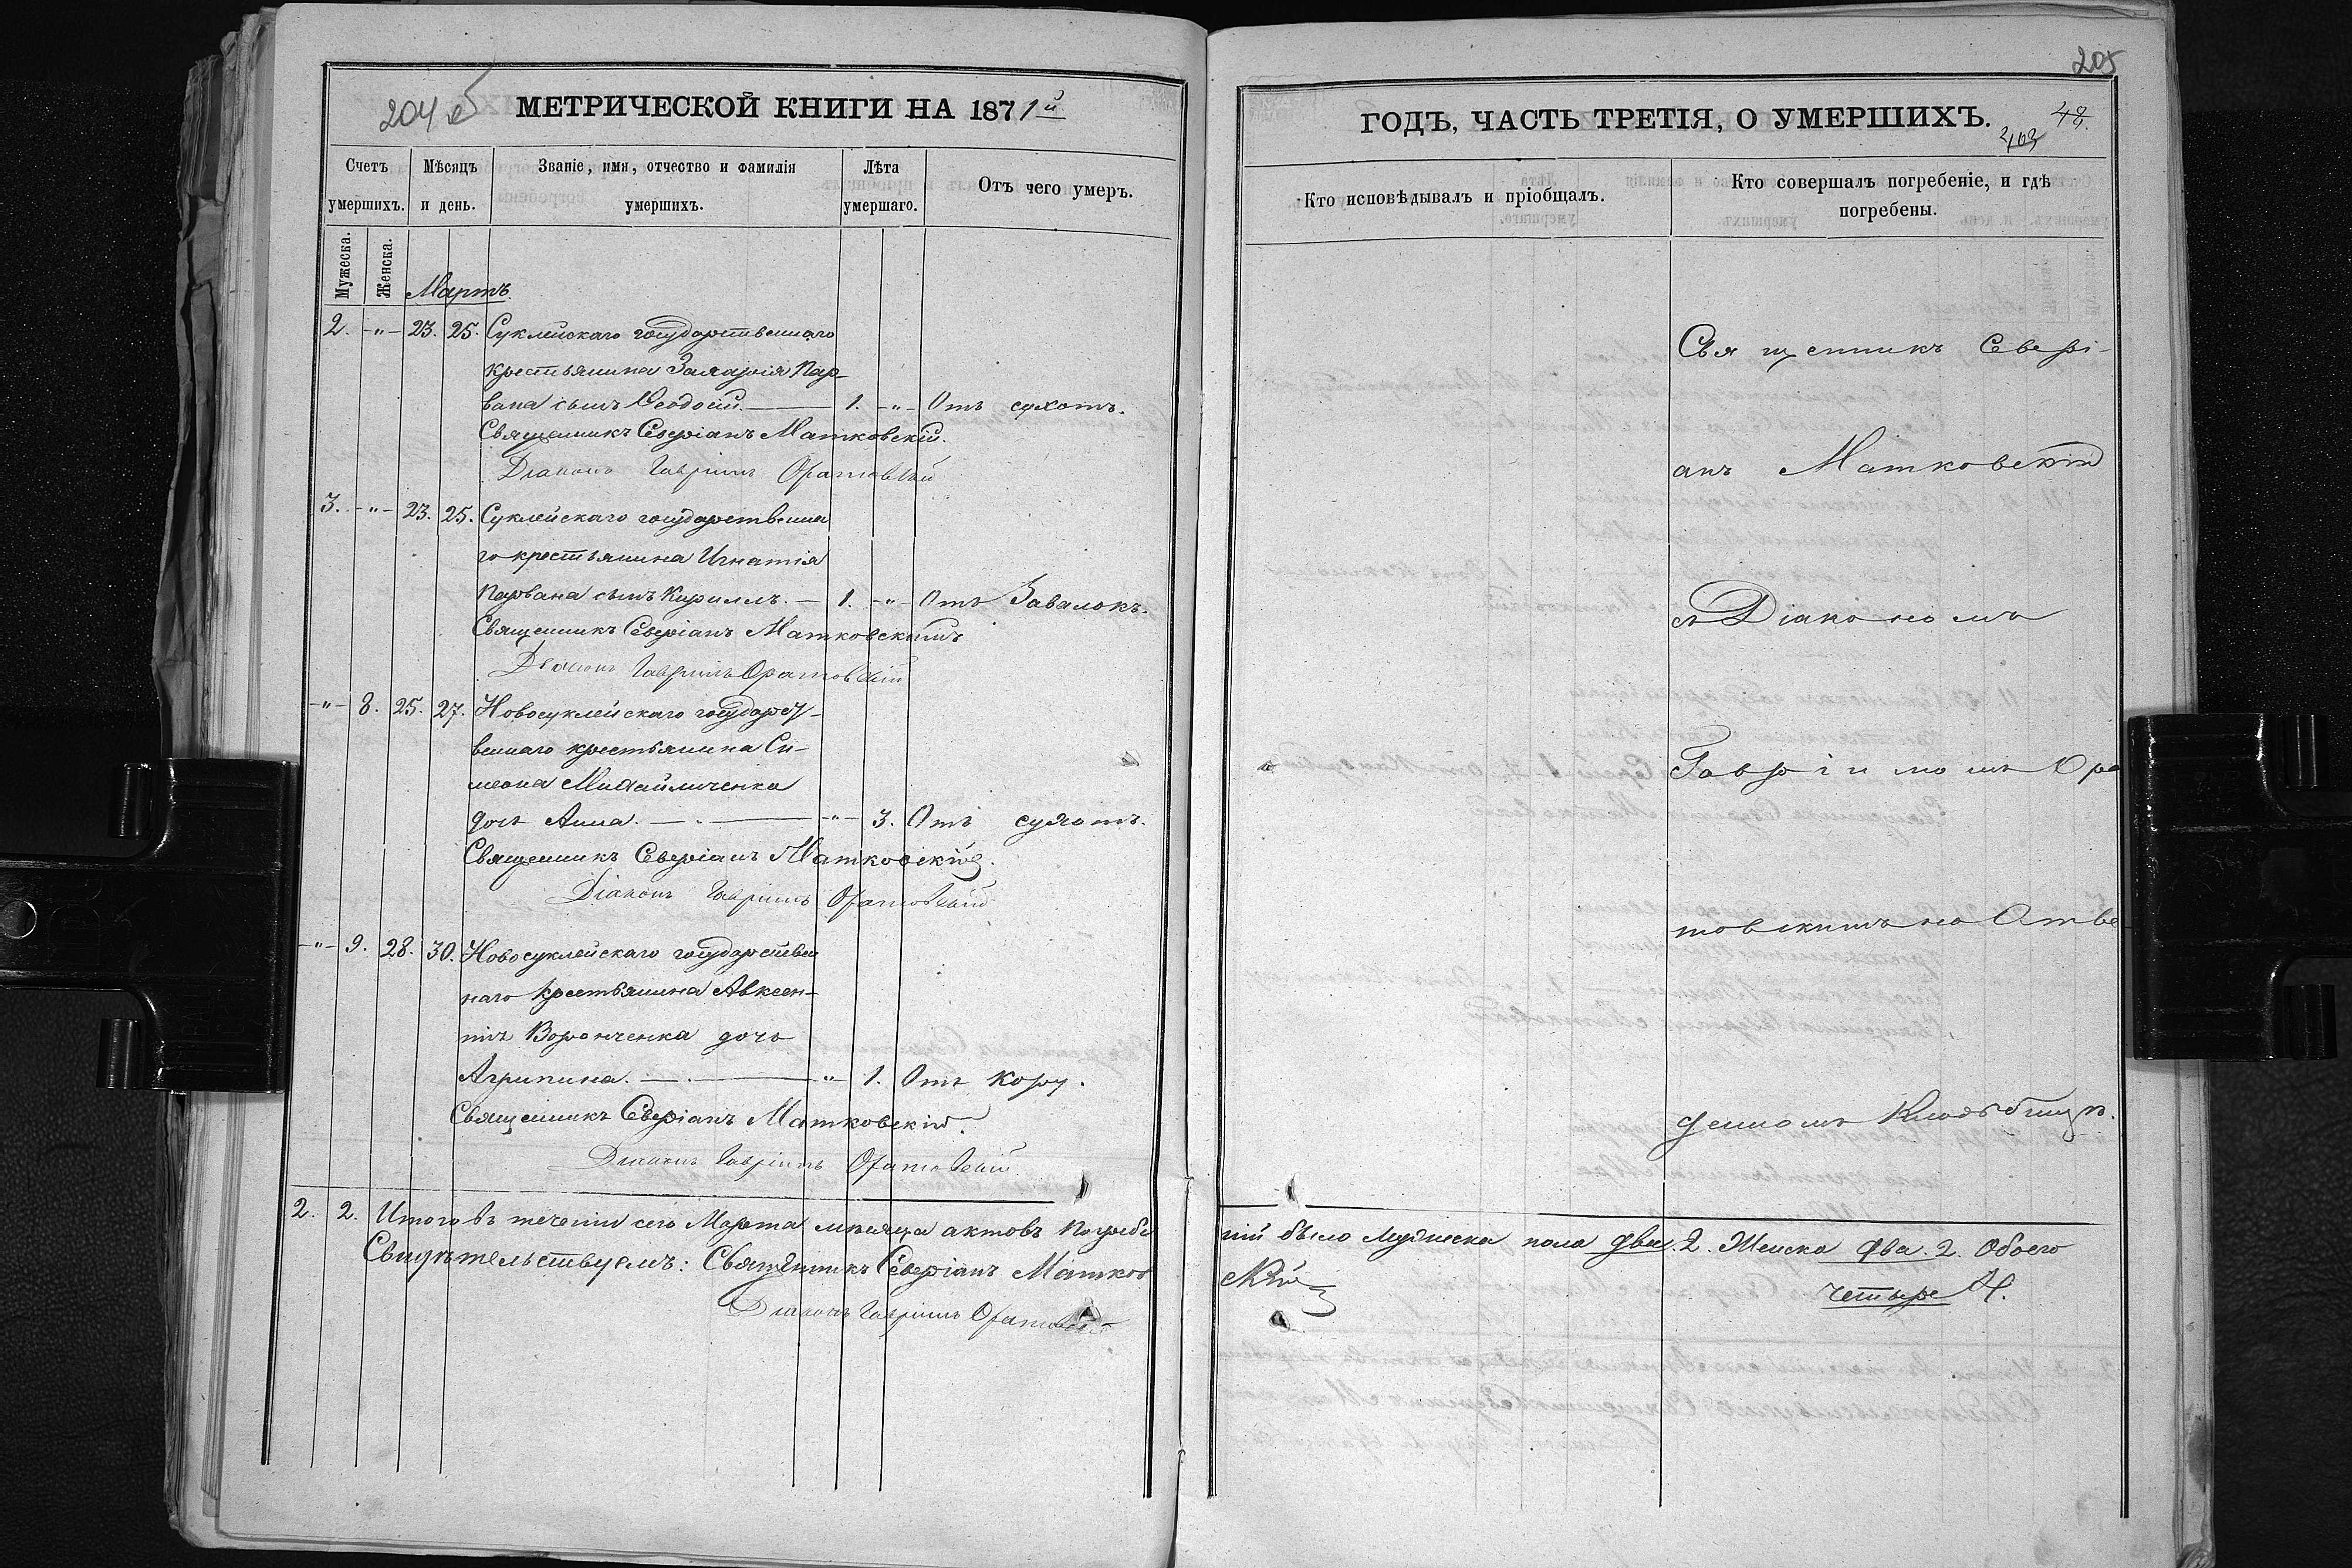 204 об
МЕТРИЧЕСКОЙ КНИГИ НА 1871й
Счетъ умершихъ.
Мѣсяцъ и день.
Званіе, имя, отчество и фамилія умершихъ.
Лѣта умершаго.
Отъ чего умеръ.
Мужеска.
Женска.
Мартъ.
2. -"- 23. 25. Суклейскаго государственнаго
крестьянина Захарія Пар-
вана сынъ Ѳеодосій. — 1. -"- Отъ сухотъ.
Священникъ Северіанъ Матковскій.
Діаконъ Гавріилъ Оратовскій
3. -"- 23. 25. Суклейскаго государственна
го крестьянина Игнатія
Парвана сынъ Кириллъ. — 1. -"- Отъ Завалокъ.
Священникъ Северіанъ Матковскій
Діаконъ Гавріилъ Оратовскій
-"- 8. 25. 27. Новосуклейскаго государст-
веннаго крестьянина Си-
меона Михайличенка
дочь Анна. — -"- 3. Отъ сухотъ.
Священникъ Северіанъ Матковскій.
Діаконъ Гавріилъ Оратовскій
-"- 9. 28. 30. Новосуклейскаго государствен
наго крестьянина Авксен-
тія Воронченка дочь
Агрипина. — -"- 1. Отъ кору.
Священникъ Северіанъ Матковскій.
Діаконъ Гавріилъ Оратовскій
2. 2. Итого въ теченіи сего Марта мѣсяца актовъ погребе
Свидѣтельствуемъ: Священникъ Северіанъ Матков
Діаконъ Гавріилъ Оратовскій
205
ГОДЪ, ЧАСТЬ ТРЕТІЯ, О УМЕРШИХЪ.
48.
403
Кто исповѣдывалъ и пріобщалъ.
Кто совершалъ погребеніе, и гдѣ погребены.
Священникъ Севері-
анъ Матковскій
съ Діакономъ
Гавріиломъ Ора
товскимъ на Отве
денномъ Кладбищѣ.
ній было Мужеска пола два. 2. Женска два. 2. Обоего
скій
четыре 4.